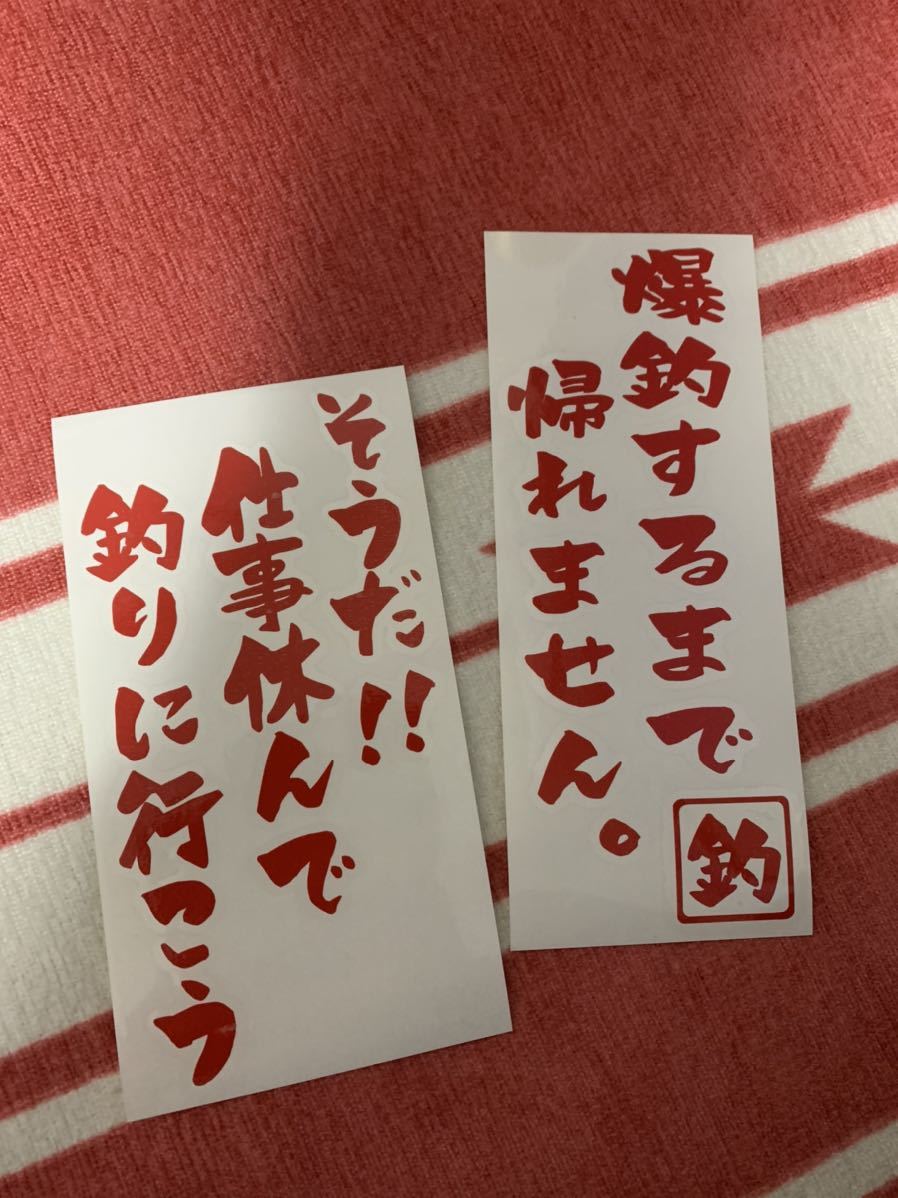 爆釣するまで
帰れません。
釣
そうだ!!
仕事休んで
釣りに行こう